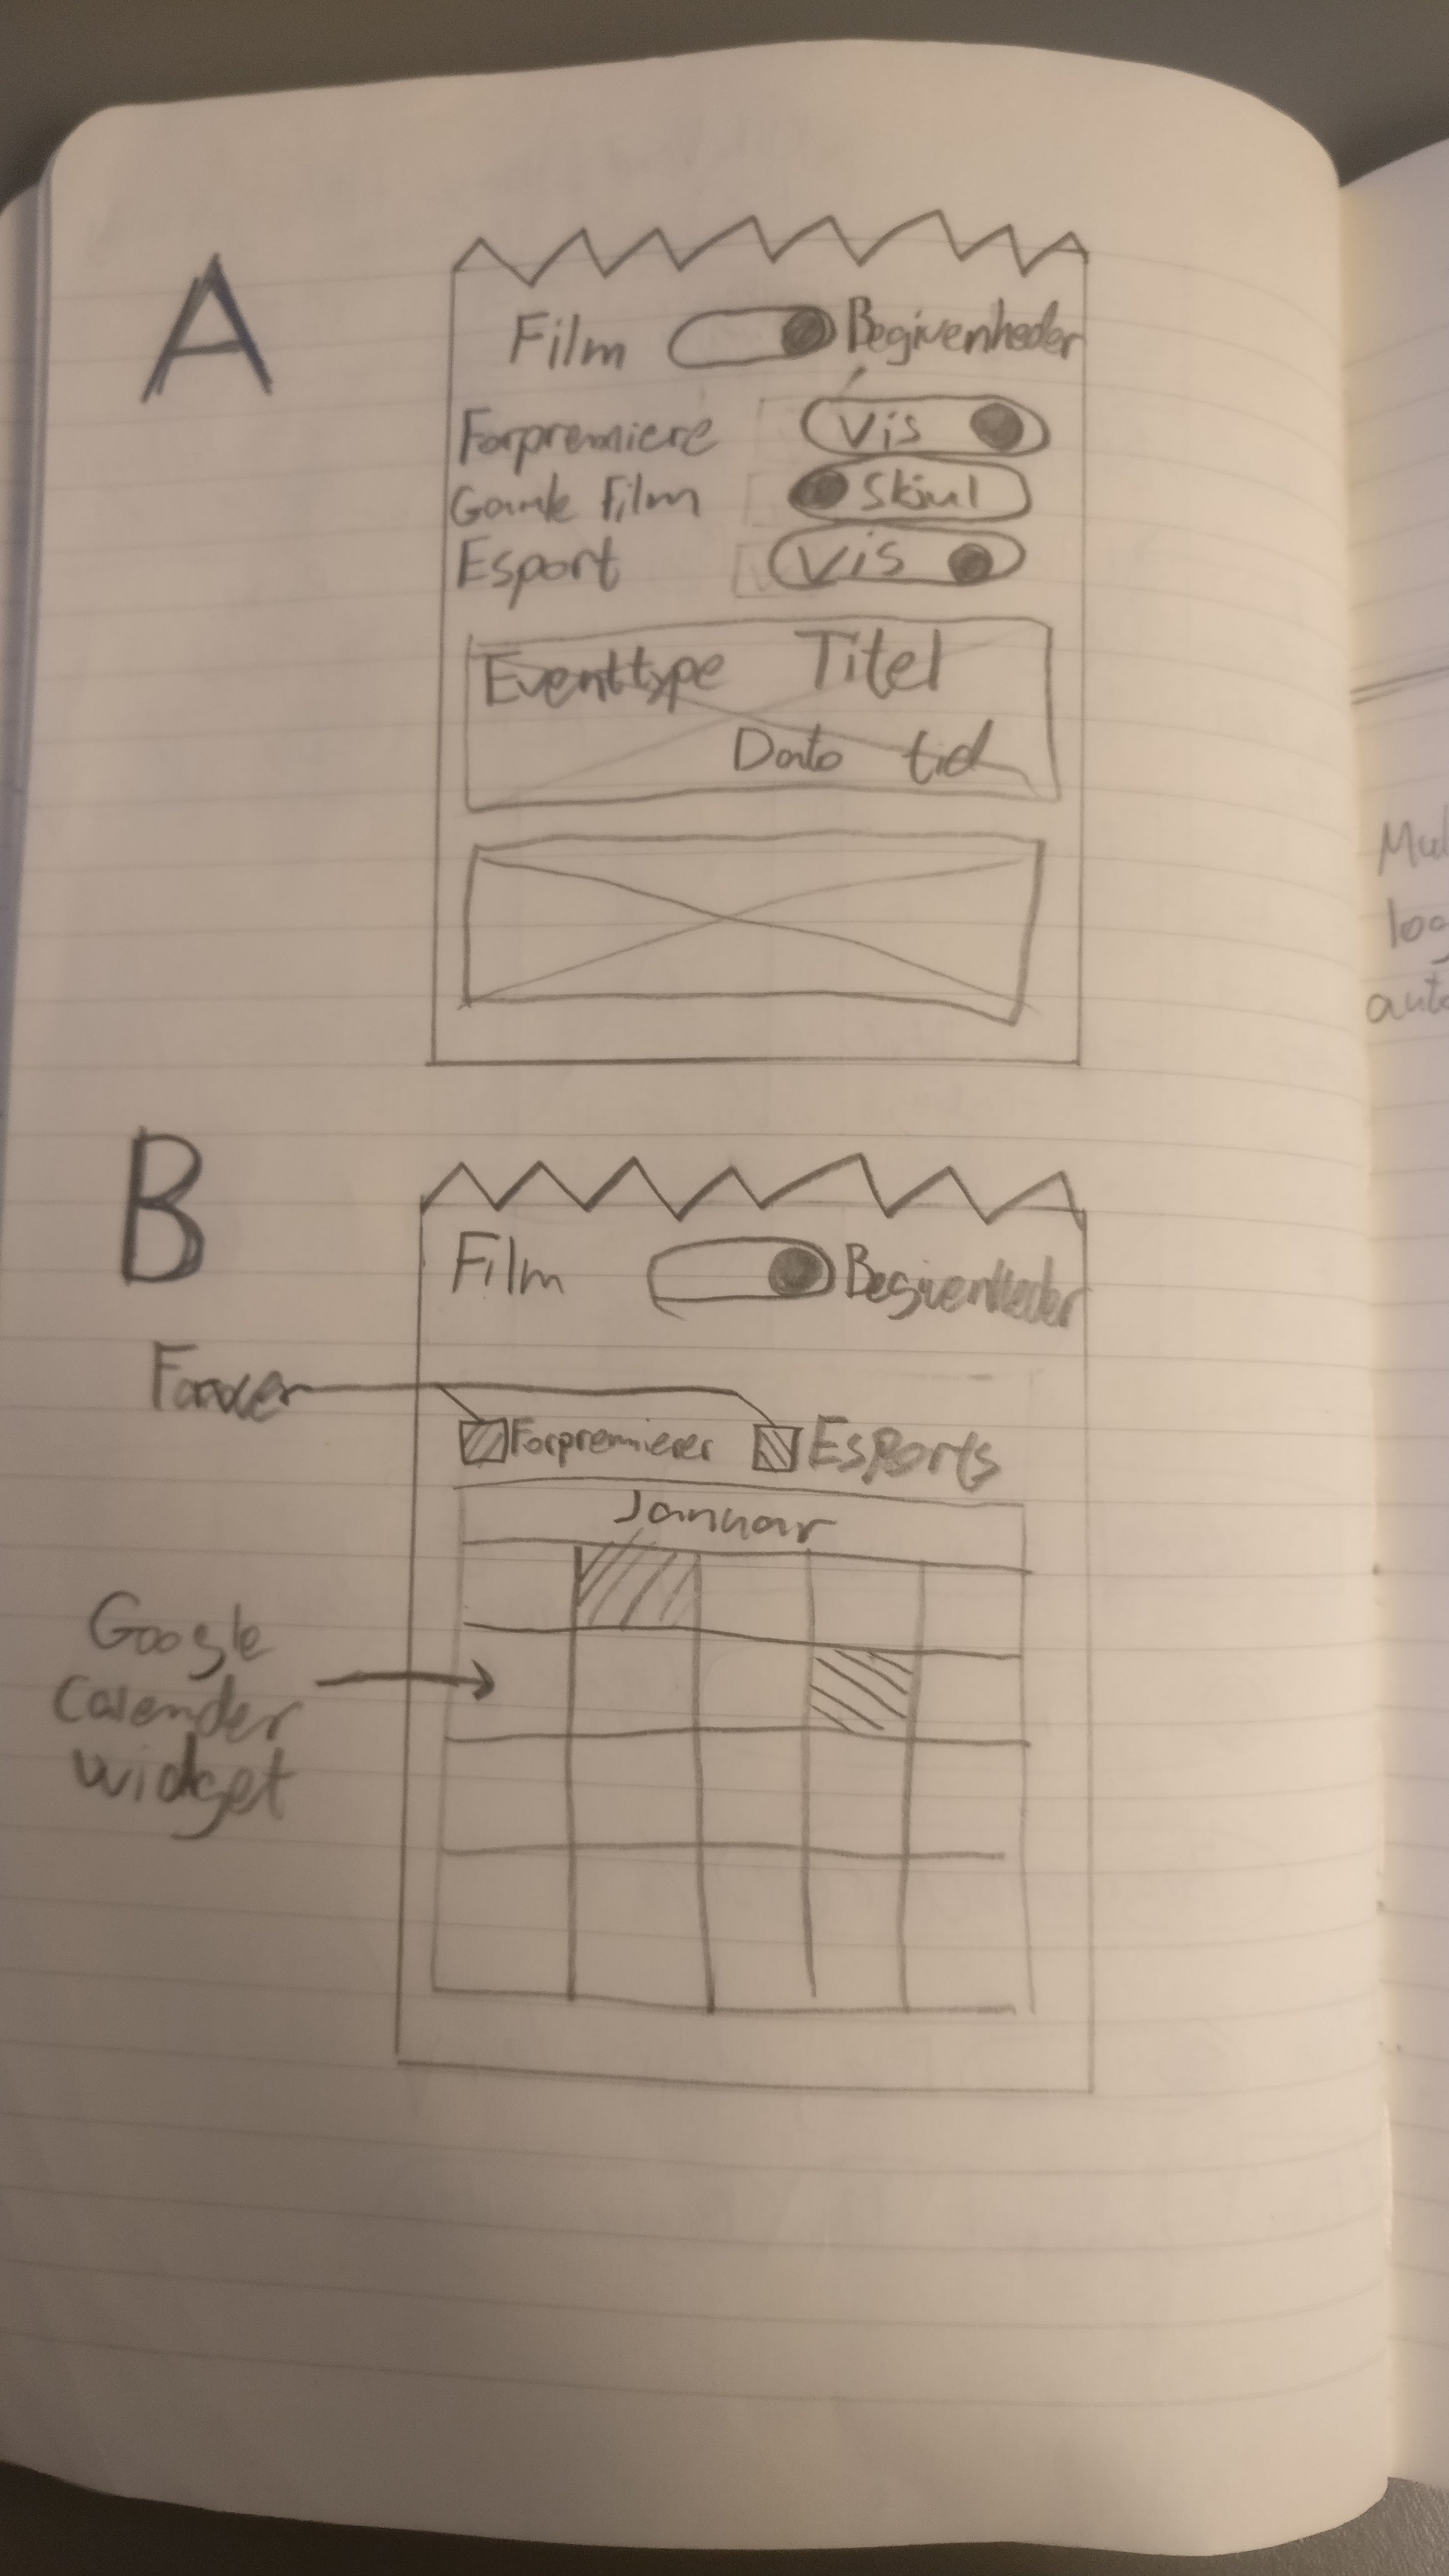 A
Film Begivenheder
Forpremiere Vis
Gamle Film Skjul
Esport Vis
Eventtype Titel
Dato tid
B
Film Begivenheder
Farver
Forpremierer Esports
Januar
Google
Calender
widget